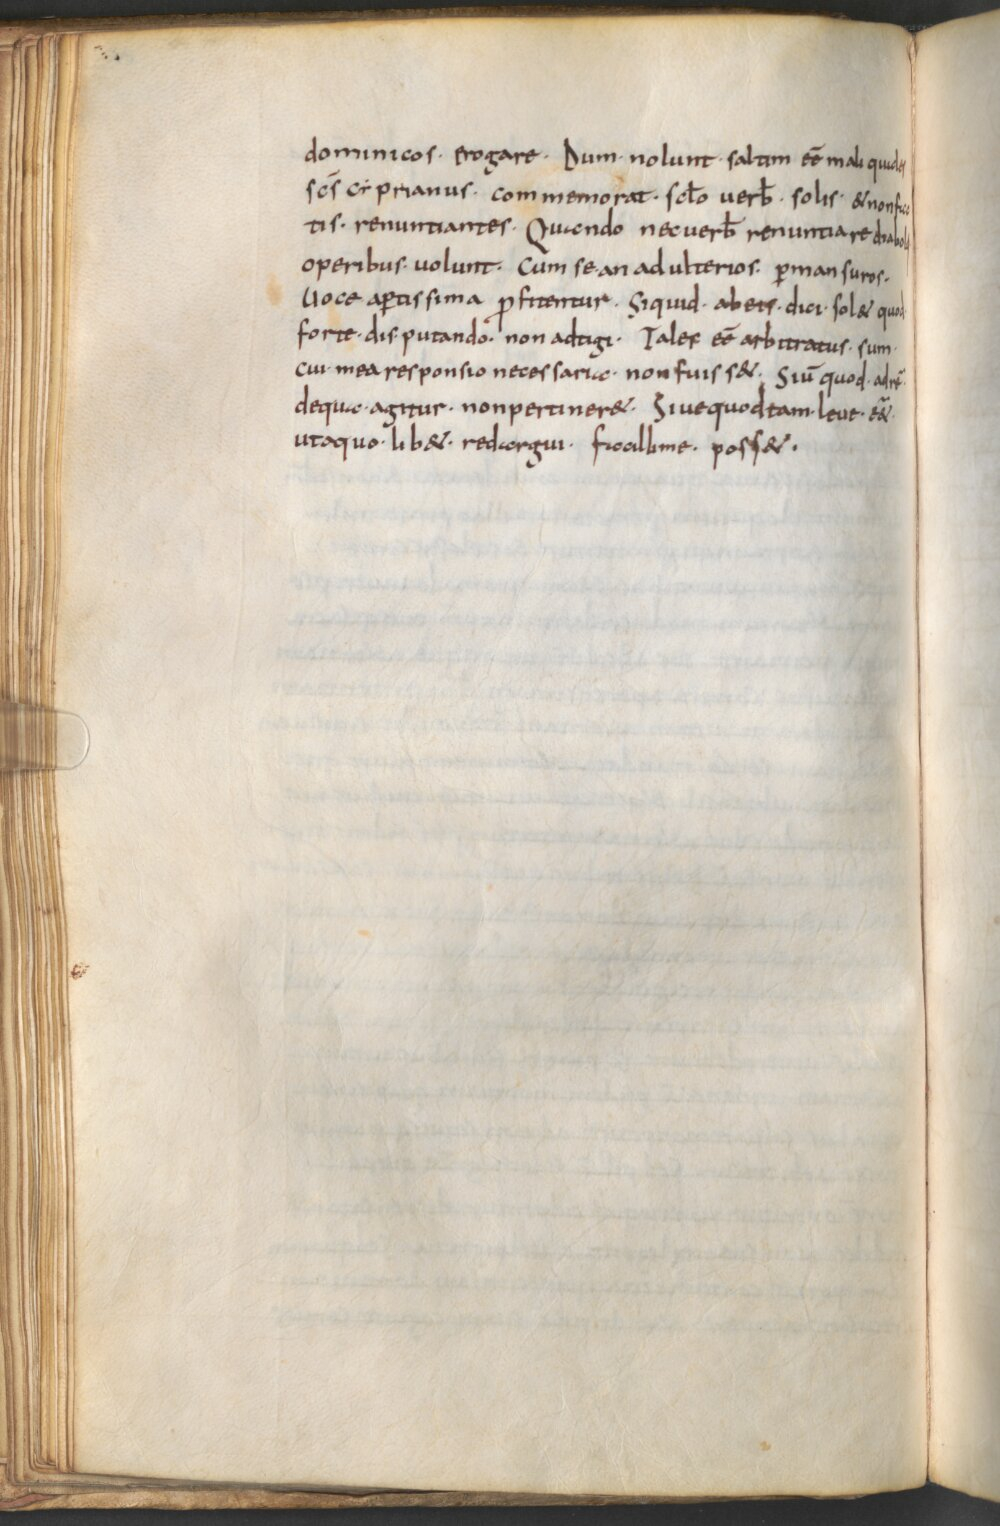 dominicos· erogare· Dum· nolunt· saltim eē mali quales
scs̄ cẏprianus· commemorat· sc̄lo verb̄· solis· & non fac
tis· renuntiantes· Quando nec verb̄ renuntiare diaboli
operibus· volunt· Cum se· an adulterios· ꝑmansuros·
Uoce aꝑtissima ꝓfitentur· Siquid· ab eis· dici· sol& quod
forte· disputando· non adtigi· Tales eē arbitratus· sum·
cui· mea responsio necessaria· non fuiss&· Siū quod· ad rē·
de qua· agitur· non pertiner&· Sive quod tam· leve· eēt·
ut a quo· lib&· redargui· facillime· poss&·